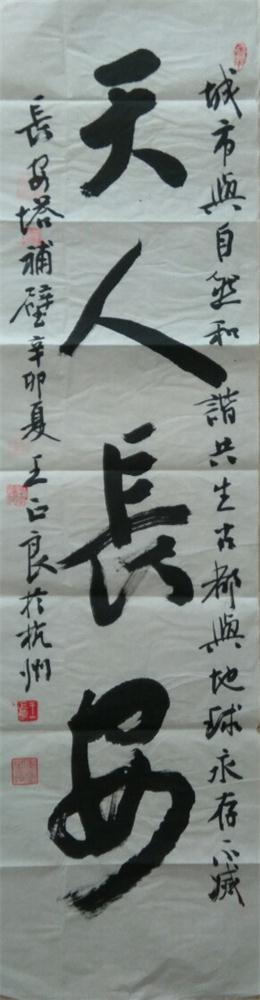 城市與自然和諧共生古都與地球永存不滅
天人長安
長安塔補壁辛卯夏王正良於杭州